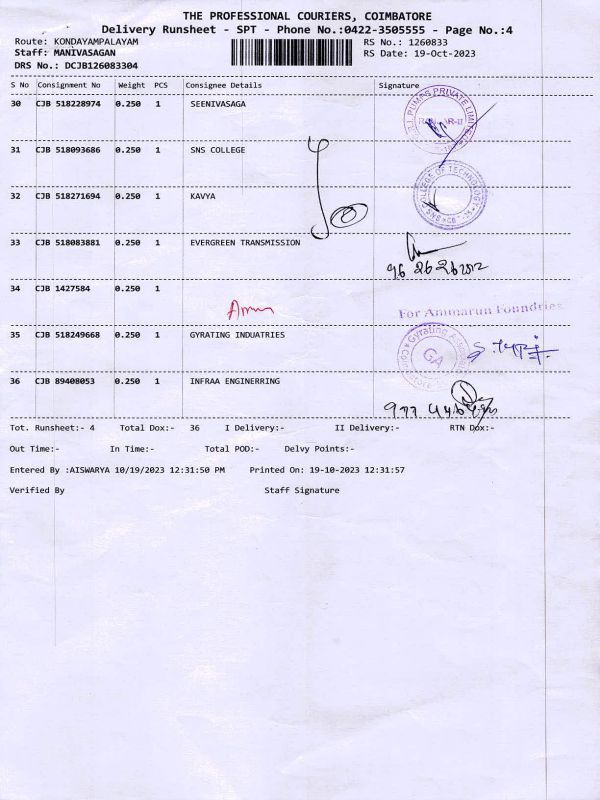 THE PROFESSIONAL COURIERS, COIMBATORE
Delivery Runsheet - SPT - Phone No.:0422-3505555 - Page No.:4
Route: KONDAYAMPALAYAM RS No.: 1260833
Staff: MANIVASAGAN RS Date: 19-Oct-2023
DRS No.: DCJB126083304
S No Consignment No Weight PCS Consignee Details Signature
30 CJB 518228974 0.250 1 SEENIVASAGA
PUMPS PRIVATE LIMITED
31 CJB 518093686 0.250 1 SNS COLLEGE
COLLEGE OF TECHNOLOGY
32 CJB 518271694 0.250 1 KAVYA
33 CJB 518083881 0.250 1 EVERGREEN TRANSMISSION
34 CJB 1427584 0.250 1
For Ammarun Foundries
35 CJB 518249668 0.250 1 GYRATING INDUATRIES
GA
36 CJB 89408053 0.250 1 INFRAA ENGINERRING
Tot. Runsheet:- 4 Total Dox:- 36 I Delivery:- II Delivery:- RTN Dox:-
Out Time:- In Time:- Total POD:- Delvy Points:-
Entered By :AISWARYA 10/19/2023 12:31:50 PM Printed On: 19-10-2023 12:31:57
Verified By Staff Signature